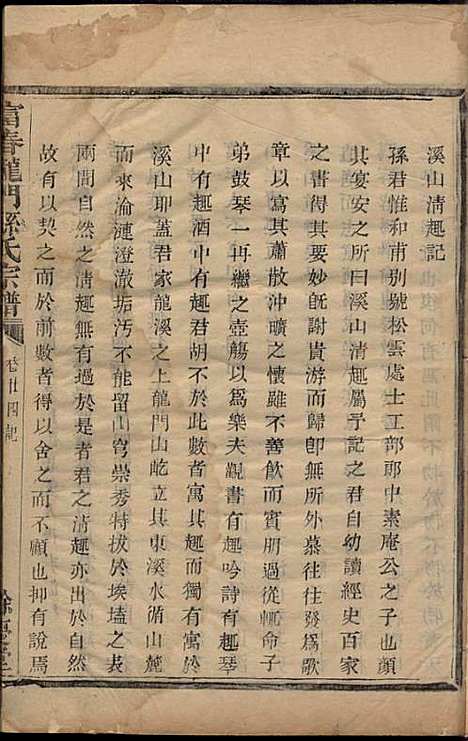 溪山清趣記
孫君惟和甫別號松雲處士工部郎中素庵公之子也顔
其宴安之所曰溪山清趣屬予記之君自幼讀經史百家
之書得其要妙旣謝貴游而歸卽無所外慕往往發爲歌
章以寫其蕭散沖曠之懷雖不善飮而賓朋過從輒命子
弟鼓琴一再繼之壺觴以爲樂夫觀書有趣吟詩有趣琴
中有趣酒中有趣君胡不於此數者寓其趣而獨有寓於
溪山耶葢君家龍溪之上龍門山屹立其東溪水循山麓
而來淪漣澄澈垢汚不能留山穹崇秀特拔於埃壒之表
兩間自然之清趣無有過於是者君之清趣亦出於自然
故有以契之而於前數者得以舍之而不顧也抑有說焉
富春龍門孫氏宗譜
卷廿四記
餘慶堂